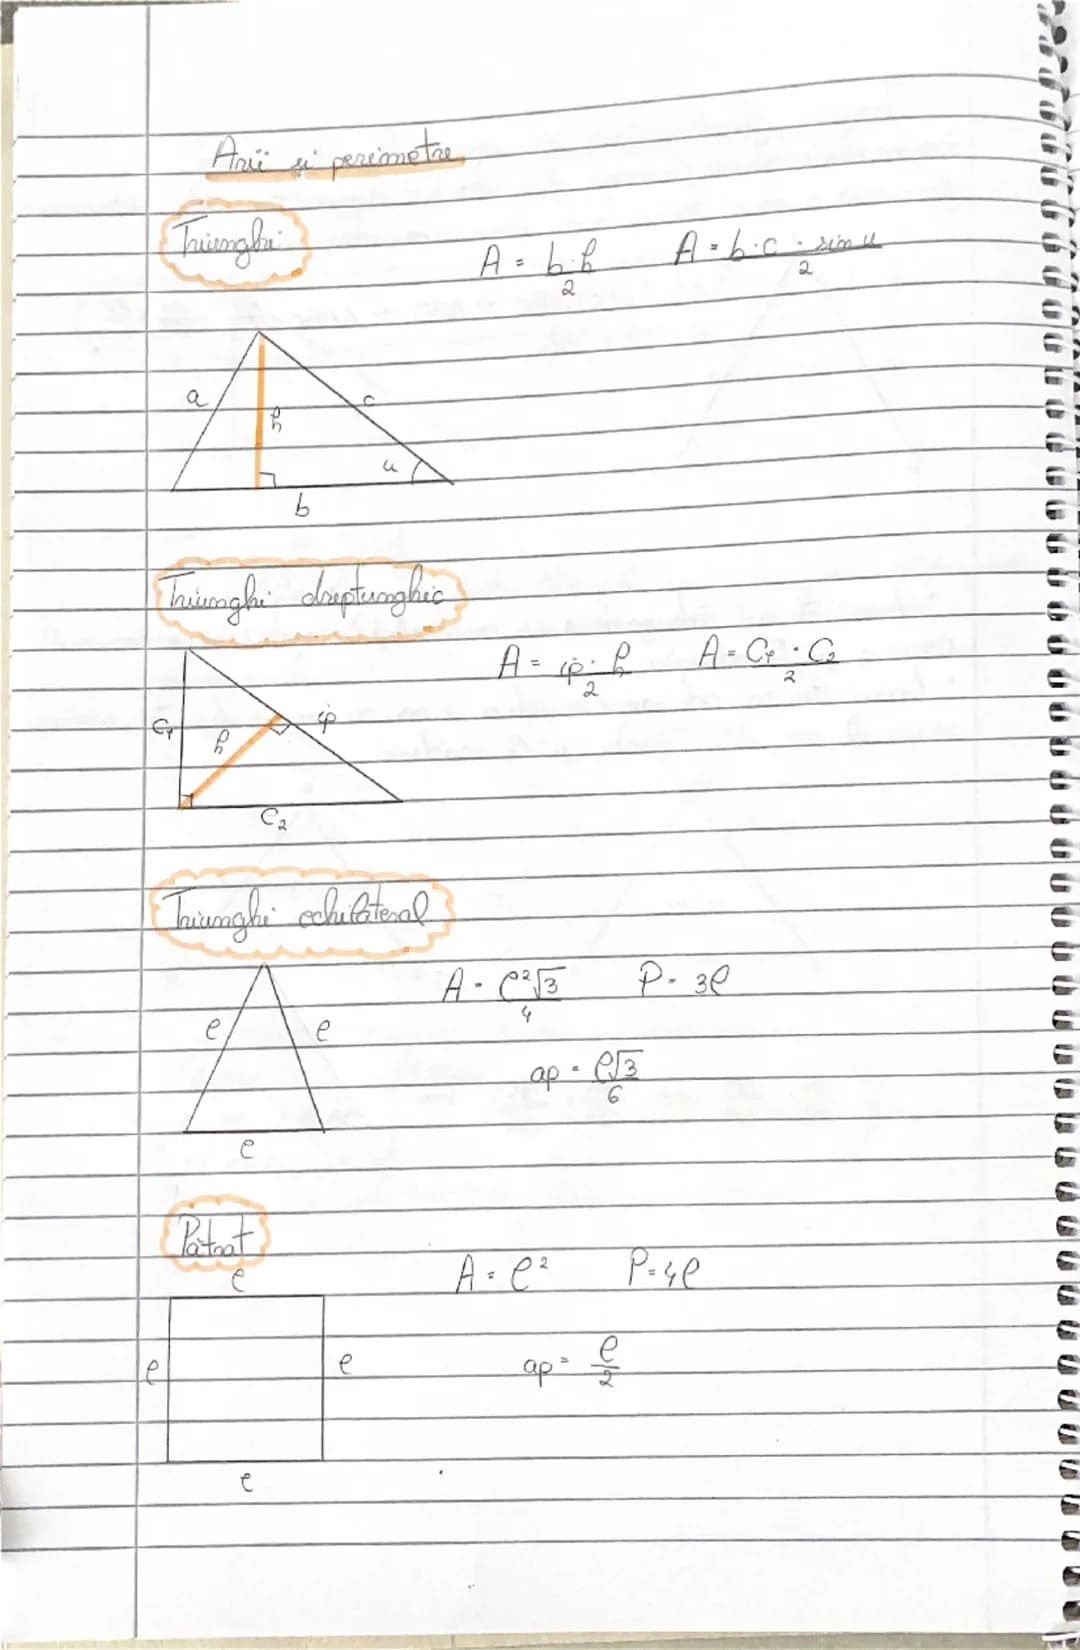 Arii și perimetre
Triunghi
A = b·h/2    A = b·c·sin u/2
a
h
c
u
b
Triunghi dreptunghic
A = ip·h/2    A = C₁·C₂/2
C₁
h
ip
C₂
Triunghi echilateral
A = l²√3/4    P = 3l
l
l
ap = l√3/6
l
Pătrat
A = l²    P = 4l
l
l
l
ap = l/2
l